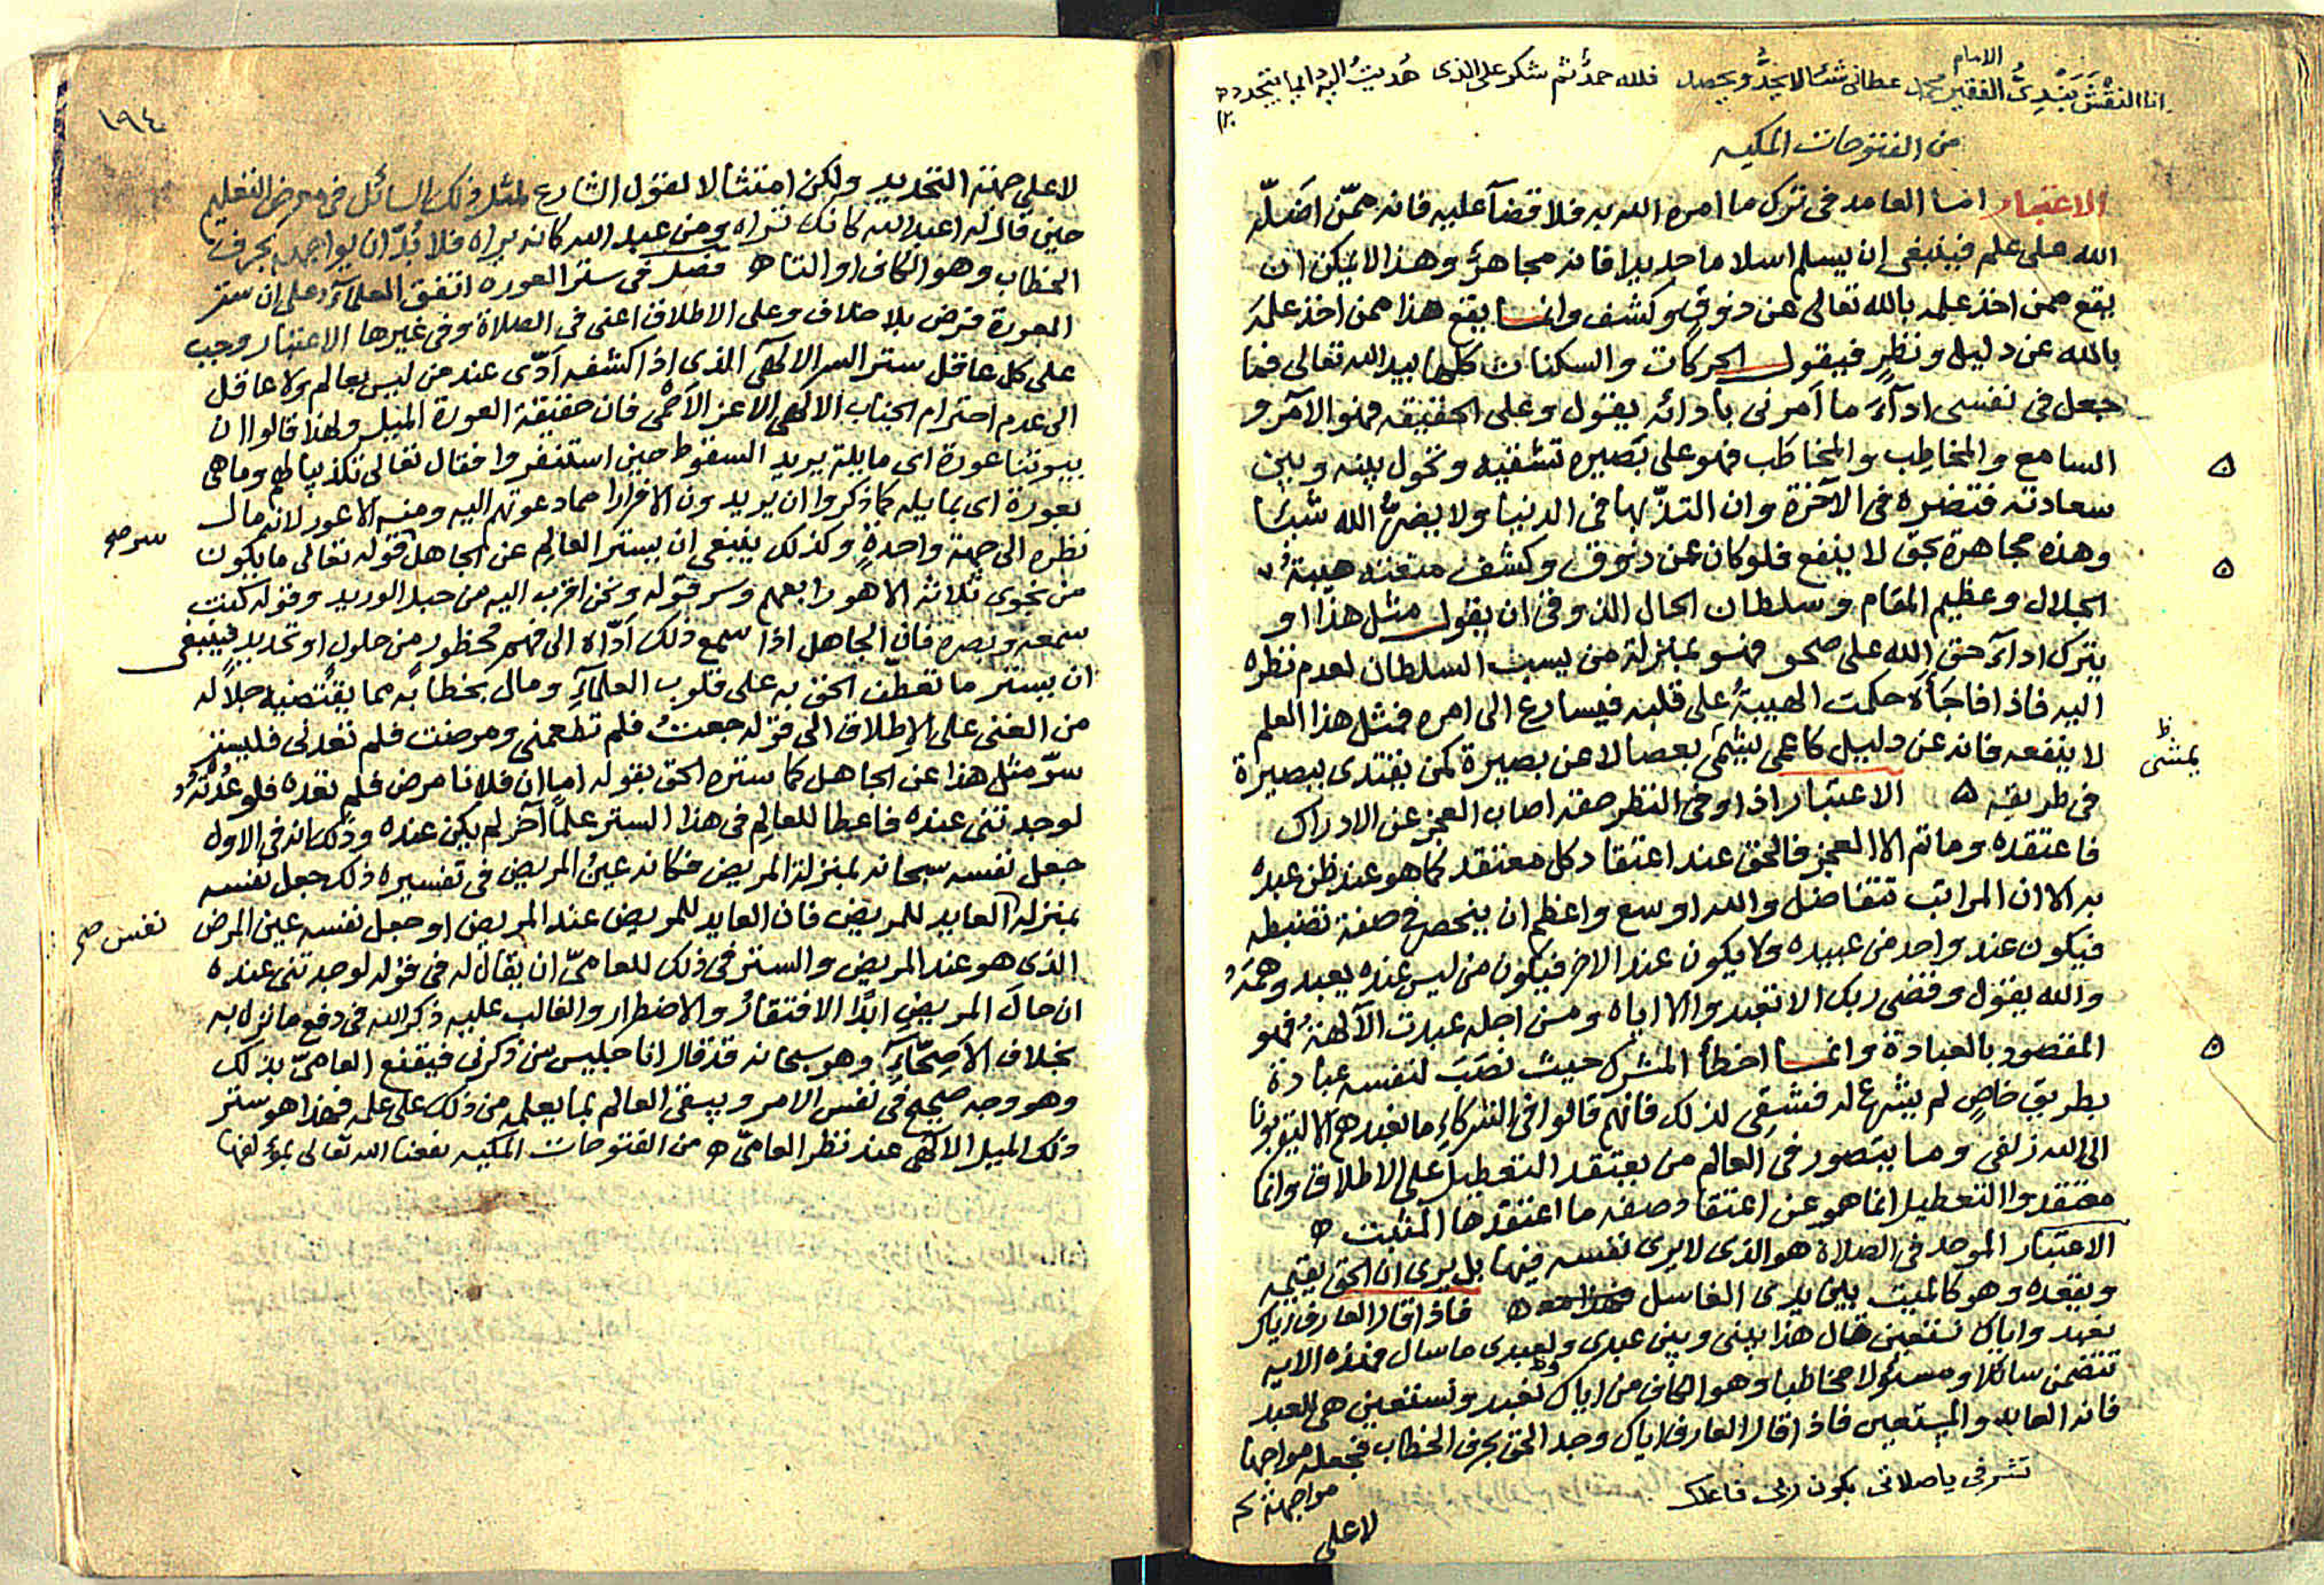 الامام
انا النقشبندي الفقير محمد عطائي شئا لا يحد ويحصل فلله حمد ثم شكر على الذى هديت اليه دايما يتجدد
من الفتوحات المكيه
الاعتبار اما العامد فى ترك ما امره الله به فلا قضآ عليه فانه ممّن اضلّه
الله على علم فينبغى ان يسلم اسلاما جديدا فانه مجاهر وهذا لا يمكن ان
يقع ممن اخذ علمه بالله تعالى عن ذوق وكشف وانما يقع هذا ممن اخذ علمه
بالله عن دليل ونظر فيقول الحركات والسكنات كلها بيد الله تعالى فما
جعل فى نفسى ادآء ما امرنى بادائه يقول وعلى الحقيقه فهو الآمر و
السامع والمخاطِب والمخاطَب فهو على بصيره تشقيه وتحول بينه وبين
سعادته فتضره فى الآخرة وان التذّ بها فى الدنيا ولا يضرّ الله شيئا
وهذه مجاهرة بحق لا ينفع فلو كان عن ذوق وكشف منعته هيبة
الجلال وعظيم المقام وسلطان الحال الذوقى ان يقول مثل هذا او
يترك ادآء حق الله على صحو فهو بمنزلة من يسب السلطان لعدم نظره
اليه فاذا فاجأه حكمت الهيبة على قلبه فيسارع الى امره فمثل هذا العلم
لا ينفعه فانه عن دليل كاعمى يشمى بعصا لا عن بصيرة كمن يقتدى ببصيرة
ظ يمشى
فى طريقه ه الاعتبار اذا وفى النظر حقه اصاب العجز عن الادراك
فاعتقده وما ثم الا العجز فالحق عند اعتقاد كل معتقد كما هو عند ظن عبده
به الا ان المراتب تتفاضل والله اوسع واعظم ان ينحصر فى صفة تضبطه
فيكون عند واحد من عبيده ولا يكون عند الاخر فيكون من ليس عنده يعبد وهمَه
والله يقول وقضى ربك الا تعبدوا الا اياه ومن اجله عبدت الآلهة فهو
المقصود بالعبادة وانما اخطأ المشرك حيث نصب لنفسه عبادة
بطريق خاص لم يشرع له فشقى لذلك فانهم قالوا فى الشركاء ما نعبدهم الا ليقربونا
الى الله زلفى وما يتصور فى العالم من يعتقد التعطيل على الاطلاق وانما
معتقدوا التعطيل انما هو عن اعتقاد صفه ما اعتقدها المثبت ه
الاعتبار الموحد فى الصلاة هو الذى لا يرى نفسه فيها بل يرى ان الحق يقيمه
ويقعده وهو كالميت بين يدى الغاسل ه فاذا قال العارف اياك
نعبد واياك نستعين قال هذا بينى وبين عبدى ولعبدى ما سال فهذه الايه
تتضمن سائلا ومسئولا مخاطبا وهو الكاف من اياك نعبد ونستعين هى للعبد
فانه العابد والمستعين فاذا قال العارف اياك وجد الحق بحرف الخطاب فجعله مواجها
مواجهة
تشرفى يا صلاتى بكون ربى فاعلك
لا على
١٩٤
لا على جهة التحديد ولكن امتثالا لقول الشارع لمثل ذلك السائل فى معرض التعليم
حين قال له اعبد الله كانك تراه ومن عبد الله كانه يراه فلا بُدّ ان يواجهه بحرف
الخطاب وهو الكاف او التا ه فصل فى ستر العورة اتفق العلمآء على ان ستر
العورة فرض بلا خلاف وعلى الاطلاق اعنى فى الصلاة وفى غيرها الاعتبار وجب
على كل عاقل ستر السر الالهى الذى اذا كشفه ادّى عند من ليس بعالم ولا عاقل
الى عدم احترام الجناب الالهى الاعز الاحمى فان حقيقة العورة الميل ولهذا قالوا ان
بيوتنا عورة اى مايلة يريد السقوط حين استنفروا فقال تعالى تكذيبا لهم وما هى
بعورة اى بمايله كما ذكروا ان يريدون الا فرارا مما دعوتهم اليه ومنه الاعور لانه مال
نظره الى جهة واحدة وكذلك ينبغى ان يستر العالم عن الجاهل قوله تعالى ما يكون
سر صح
من نجوى ثلاثة الا هو رابعهم وسر قوله ونحن اقرب اليه من حبل الوريد وقوله كنت
سمعه وبصره فان الجاهل اذا سمع ذلك ادّاه الى فهم محظور من حلول او تحديد فينبغى
ان يستر ما تعطّف الحق به على قلوب العلمآء ومال بخطابه مما يقتضيه جلاله
من الغنى على الاطلاق الى قوله جعت فلم تطعمنى ومرضت فلم تعدنى فليستر
سرّ مثل هذا عن الجاهل كما ستره الحق بقوله اما ان فلانا مرض فلم تعده فلو عدته
لوجدتنى عنده فاعطا للعالم فى هذا الستر علما آخر لم يكن عنده وذلك انه فى الاول
جعل نفسه سبحانه بمنزلة المريض فكانه عين المريض فى تفسيره ذلك جعل نفسه
بمنزلة العايد للمريض فان العايد للمريض عند المريض او جعل نفسه عين المرض
نفس صح
الذى هو عند المريض والستر فى ذلك للعامىّ ان يقال له فى قوله لوجدتنى عنده
ان حال المريض ابدًا الافتقار والاضطرار والغالب عليه ذكر الله فى دفع ما نزل به
بخلاف الاصحّآء وهو سبحانه قد قال انا جليس من ذكرنى فيقنع العامىّ بذلك
وهو وجه صحيح فى نفس الامر ويبقى العالم بما يعلمه من ذلك على علمه فهذا هو ستر
ذلك الميل الالهى عند نظر العامىّ ه من الفتوحات المكيه نفعنا الله تعالى بمؤلفها